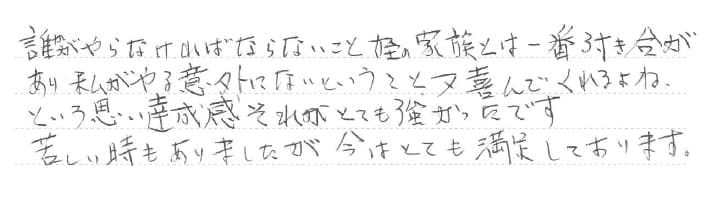 誰かがやらなければならないこと 姪の家族とは一番付き合が
あり 私がやる意外にないということ 又喜んでくれるよね、
という思い達成感それがとても強かったです
苦しい時もありましたが今はとても満足しております。